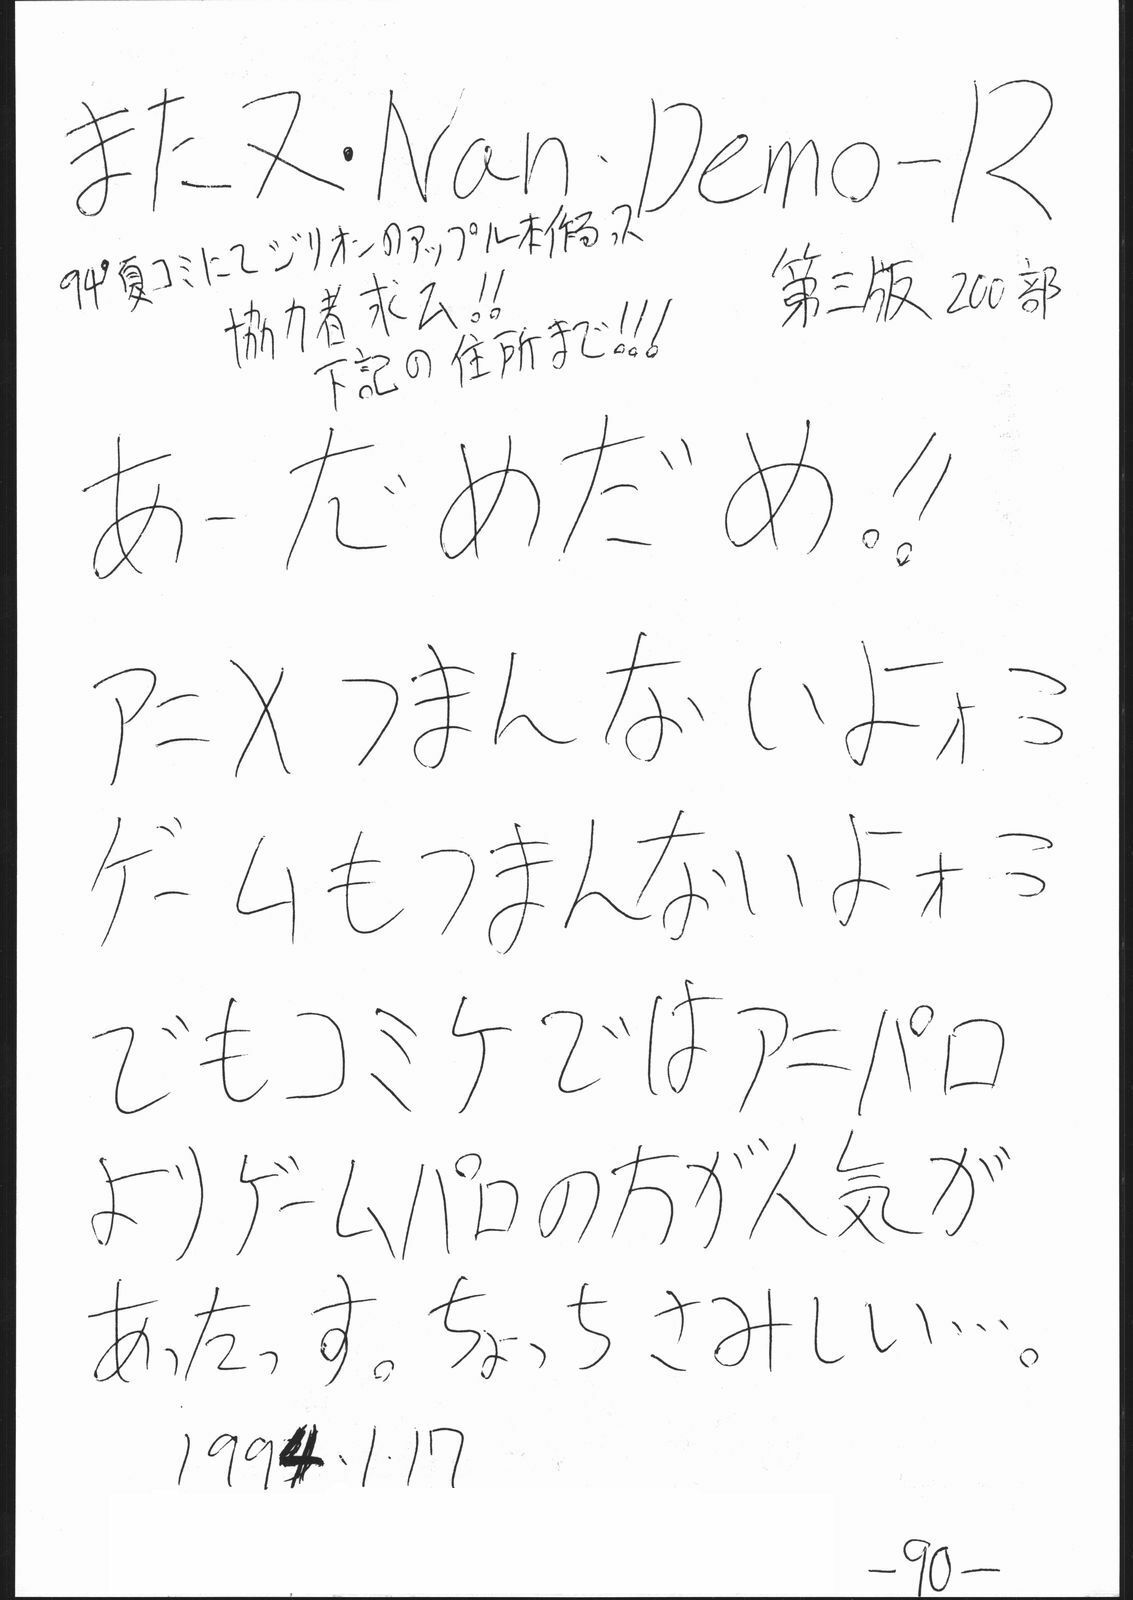 またヌ・Nan・Demo-R
94'夏コミにてジリオンのアップル本作るっス
協力者求ム!!
下記の住所まで!!!
第三版 200部
あーだめだめ!!
アニメつまんないよォミ
ゲームもつまんないよォミ
でもコミケではアニパロ
よりゲームパロの方が人気が
あったっす。ちょっちさみしい…。
1994.1.17
-90-